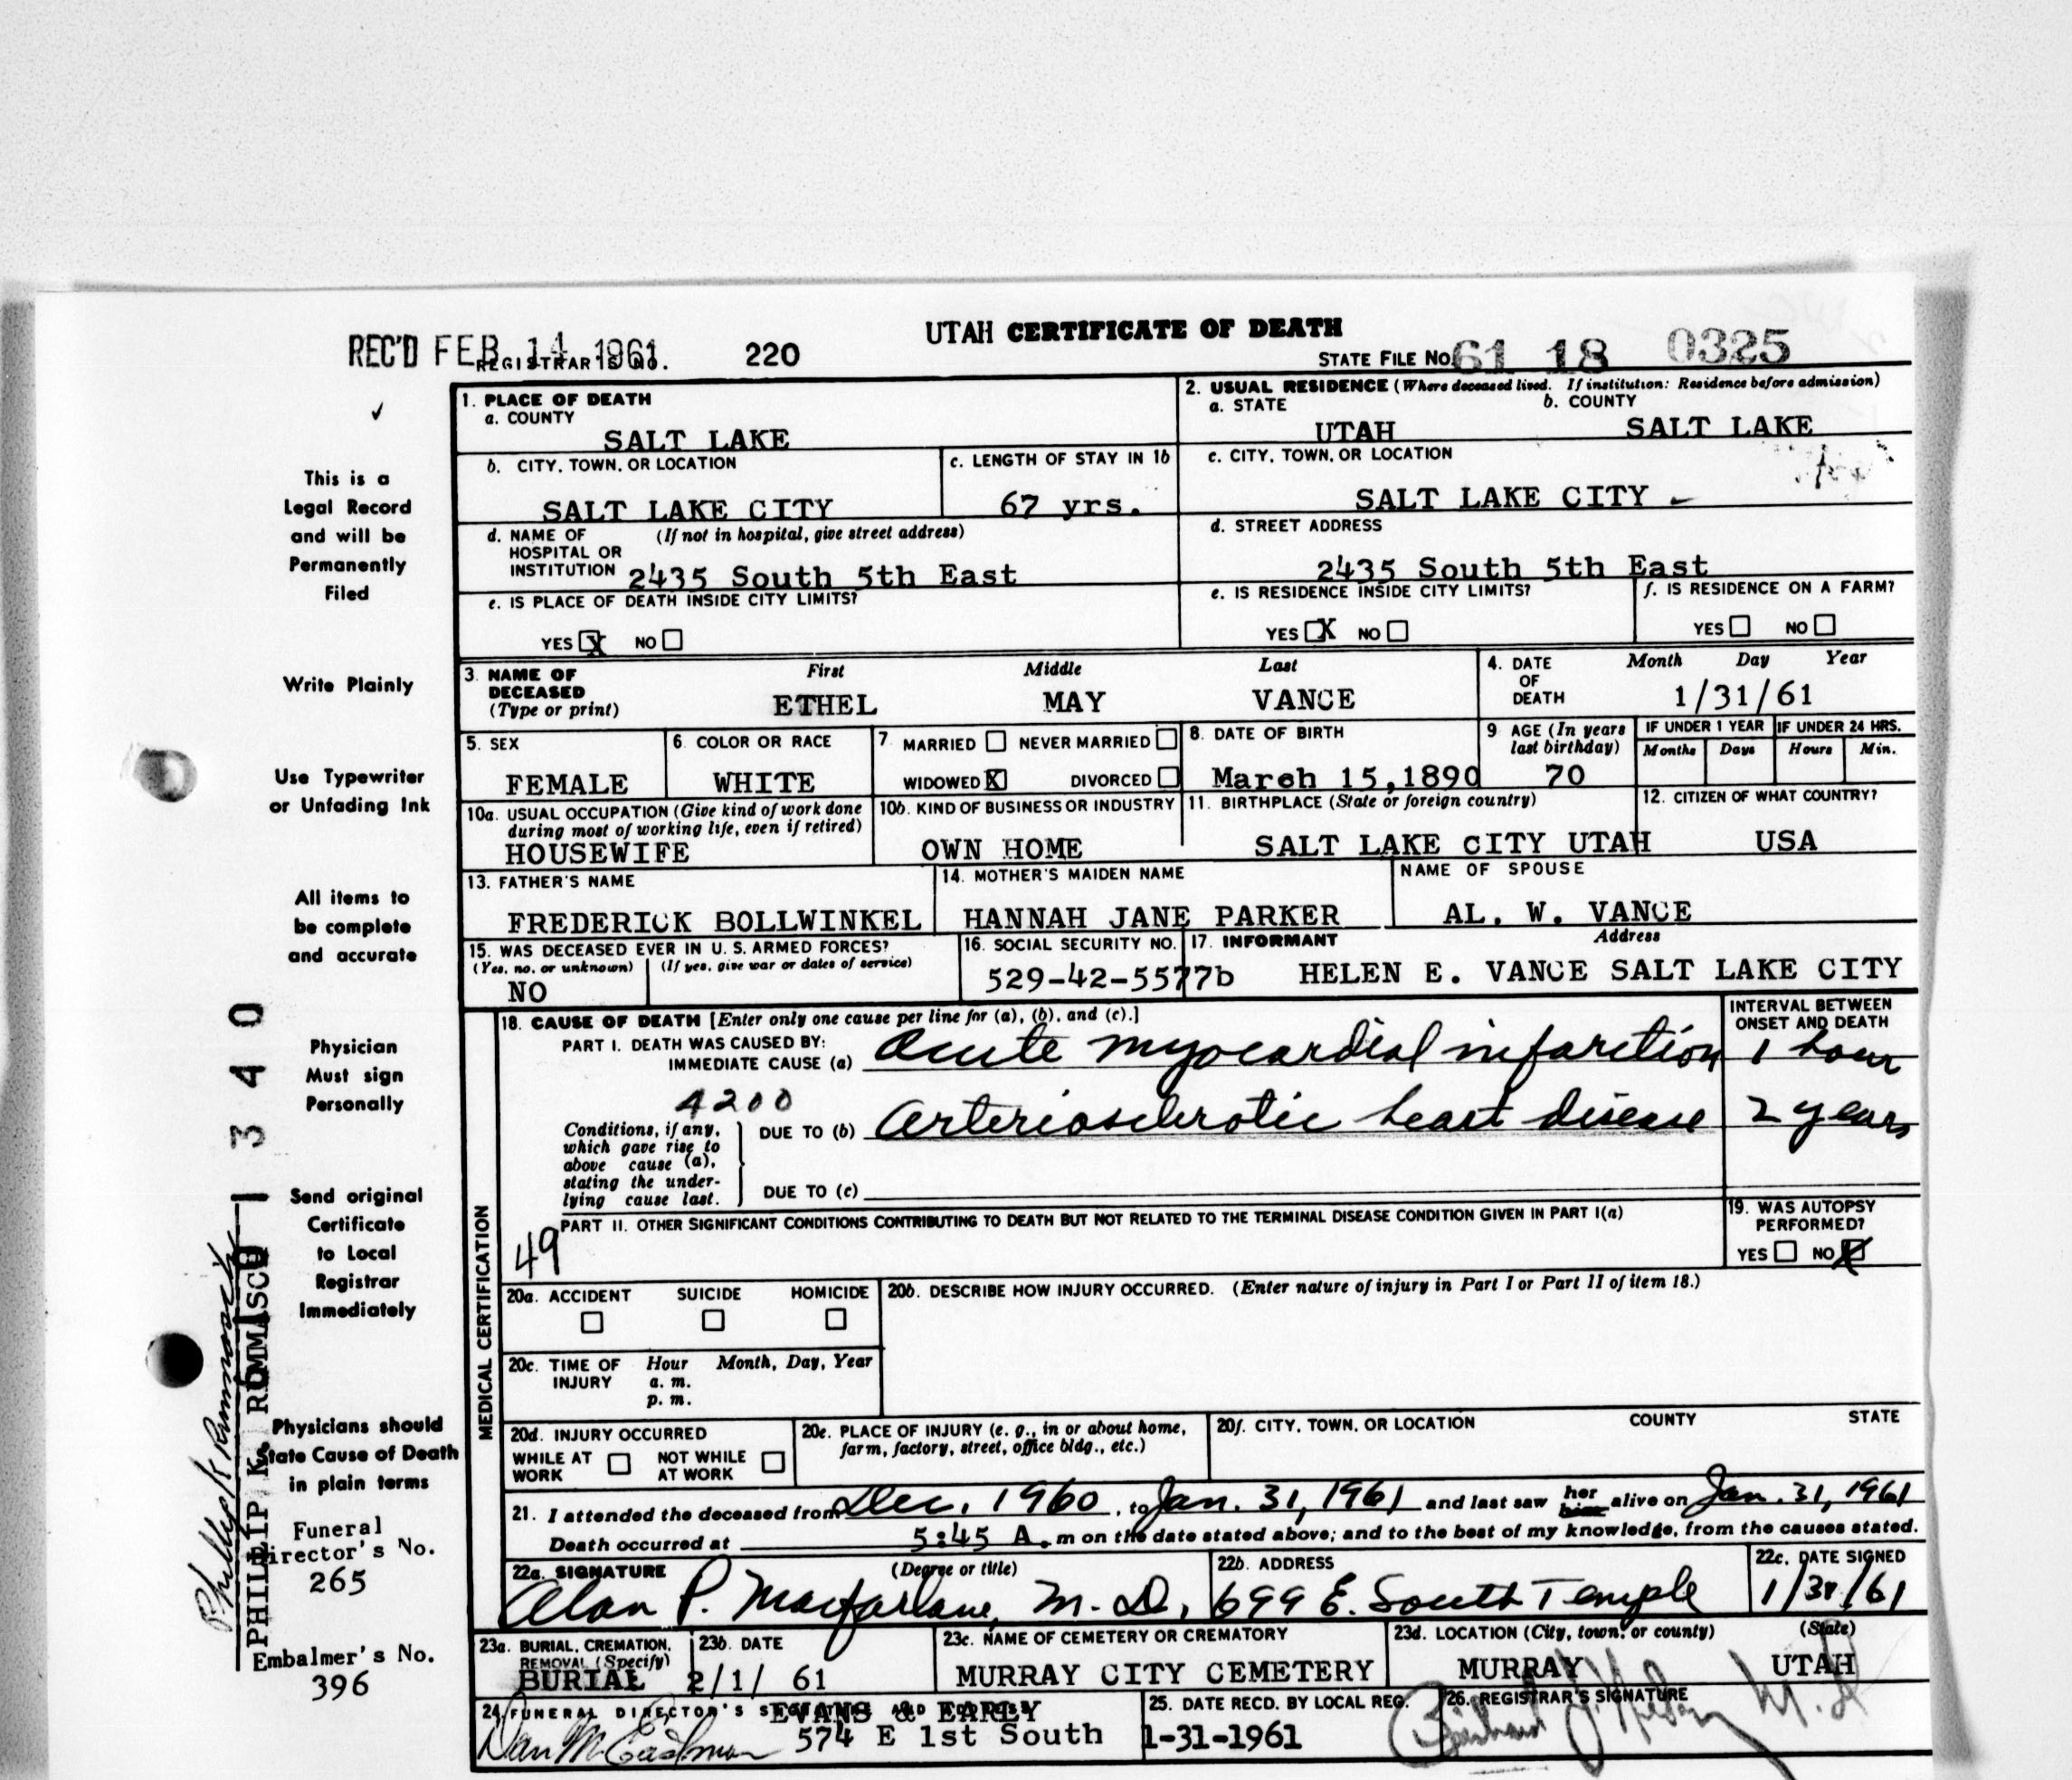 UTAH CERTIFICATE OF DEATH
REC'D FEB 14 1961
REGISTRAR'S NO. 220
STATE FILE NO. 61 18 0325
1. PLACE OF DEATH
a. COUNTY
SALT LAKE
2. USUAL RESIDENCE (Where deceased lived. If institution: Residence before admission)
a. STATE b. COUNTY
UTAH SALT LAKE
b. CITY, TOWN, OR LOCATION
SALT LAKE CITY
c. LENGTH OF STAY IN 1b
67 yrs.
c. CITY, TOWN, OR LOCATION
SALT LAKE CITY
d. NAME OF (If not in hospital, give street address)
HOSPITAL OR
INSTITUTION 2435 South 5th East
d. STREET ADDRESS
2435 South 5th East
e. IS PLACE OF DEATH INSIDE CITY LIMITS?
YES X NO
e. IS RESIDENCE INSIDE CITY LIMITS?
YES X NO
f. IS RESIDENCE ON A FARM?
YES NO
3. NAME OF DECEASED (Type or print)
First Middle Last
ETHEL MAY VANCE
4. DATE OF DEATH
Month Day Year
1/31/61
5. SEX
FEMALE
6. COLOR OR RACE
WHITE
7. MARRIED NEVER MARRIED
WIDOWED X DIVORCED
8. DATE OF BIRTH
March 15,1890
9 AGE (In years last birthday)
70
IF UNDER 1 YEAR
Months Days
IF UNDER 24 HRS.
Hours Min.
10a. USUAL OCCUPATION (Give kind of work done
during most of working life, even if retired)
HOUSEWIFE
10b. KIND OF BUSINESS OR INDUSTRY
OWN HOME
11. BIRTHPLACE (State or foreign country)
SALT LAKE CITY UTAH
12. CITIZEN OF WHAT COUNTRY?
USA
13. FATHER'S NAME
FREDERICK BOLLWINKEL
14. MOTHER'S MAIDEN NAME
HANNAH JANE PARKER
NAME OF SPOUSE
AL. W. VANCE
15. WAS DECEASED EVER IN U. S. ARMED FORCES?
(Yes, no, or unknown) (If yes, give war or dates of service)
NO
16. SOCIAL SECURITY NO.
529-42-5577b
17. INFORMANT Address
HELEN E. VANCE SALT LAKE CITY
18. CAUSE OF DEATH [Enter only one cause per line for (a), (b), and (c).]
INTERVAL BETWEEN
ONSET AND DEATH
PART I. DEATH WAS CAUSED BY:
IMMEDIATE CAUSE (a) Acute myocardial infarction 1 hour
4200
Conditions, if any,
which gave rise to
above cause (a),
stating the under-
lying cause last.
DUE TO (b) Arteriosclerotic heart disease 2 years
DUE TO (c)
PART II. OTHER SIGNIFICANT CONDITIONS CONTRIBUTING TO DEATH BUT NOT RELATED TO THE TERMINAL DISEASE CONDITION GIVEN IN PART I(a)
49
19. WAS AUTOPSY
PERFORMED?
YES NO X
MEDICAL CERTIFICATION
20a. ACCIDENT SUICIDE HOMICIDE
20b. DESCRIBE HOW INJURY OCCURRED. (Enter nature of injury in Part I or Part II of item 18.)
20c. TIME OF INJURY
Hour Month, Day, Year
a. m.
p. m.
20d. INJURY OCCURRED
WHILE AT WORK NOT WHILE AT WORK
20e. PLACE OF INJURY (e. g., in or about home,
farm, factory, street, office bldg., etc.)
20f. CITY, TOWN, OR LOCATION COUNTY STATE
21. I attended the deceased from Dec. 1960, to Jan. 31, 1961 and last saw her him alive on Jan. 31, 1961
Death occurred at 5:45 A. m on the date stated above; and to the best of my knowledge, from the causes stated.
22a. SIGNATURE (Degree or title)
Alan P. Macfarlane, M. D.,
22b. ADDRESS
699 E. South Temple
22c. DATE SIGNED
1/31/61
23a. BURIAL, CREMATION,
REMOVAL (Specify)
BURIAL
23b. DATE
2/1/ 61
23c. NAME OF CEMETERY OR CREMATORY
MURRAY CITY CEMETERY
23d. LOCATION (City, town, or county) (State)
MURRAY UTAH
24. FUNERAL DIRECTOR'S
EVANS & EARLY
Dan M. Eastman 574 E 1st South
25. DATE RECD. BY LOCAL REG.
1-31-1961
26. REGISTRAR'S SIGNATURE
M. D.
This is a
Legal Record
and will be
Permanently
Filed
Write Plainly
Use Typewriter
or Unfading Ink
All items to
be complete
and accurate
Physician
Must sign
Personally
Send original
Certificate
to Local
Registrar
Immediately
Physicians should
State Cause of Death
in plain terms
Funeral
Director's No.
265
Embalmer's No.
396
1 3 4 0
PHILIP K.